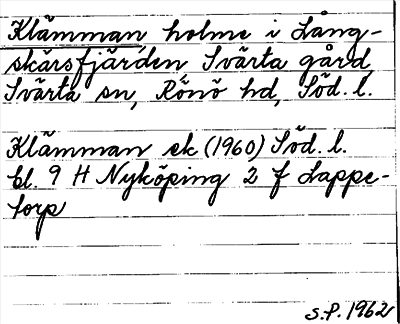 Klämman holme i Lång-
skärsfjärden Svärta gård,
Svärta sn, Rönö hd, Söd. l.
Klämman ek (1960) Söd. l.
bl. 9 H Nyköping 2 f Lappe-
torp
S.P. 1962